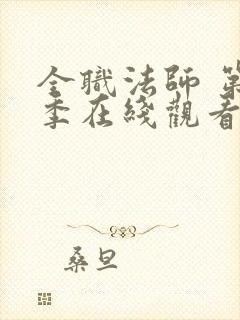 全職法師 第
季在綫觀看
桑旦